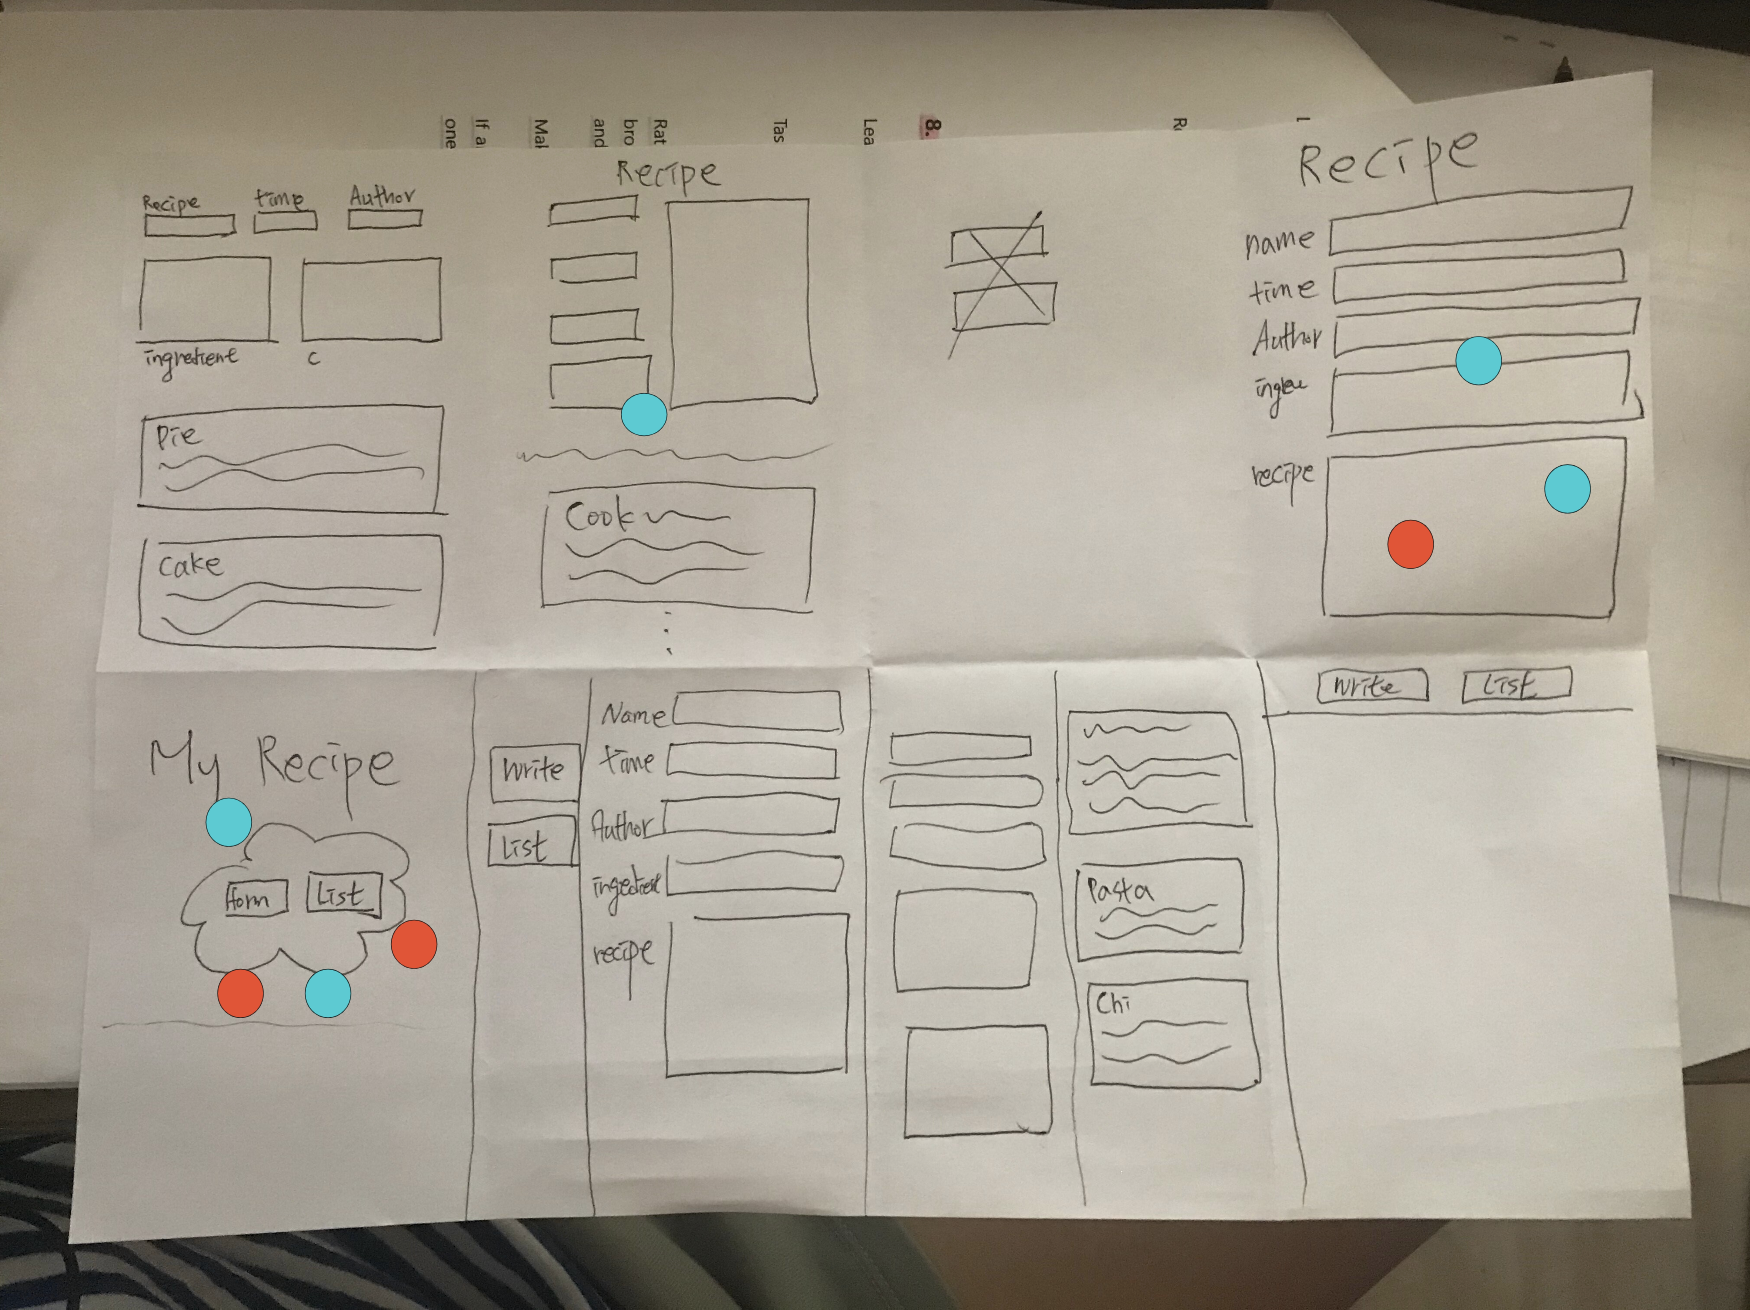 one
If a
Mal
and
bro
Rat
Tas
Lea
8.
Recipe
time
Author
ingredient
c
Pie
Cake
Recipe
Cook
Recipe
name
time
Author
recipe
My Recipe
form
List
Write
List
Name
time
Author
recipe
Pasta
Chi
Write
List